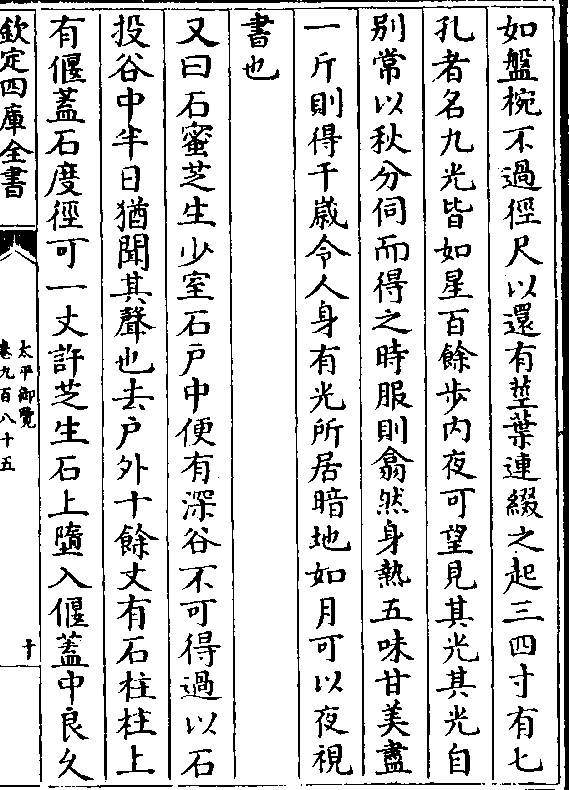 如盤椀不過徑尺以還有莖葉連綴之起三四寸有七
孔者名九光皆如星百餘步內夜可望見其光其光自
别常以秋分伺而得之時服則翕然身熱五味甘美盡
一斤則得千嵗令人身有光所居暗地如月可以夜視
書也
又曰石蜜芝生少室石户中便有深谷不可得過以石
投谷中半日猶聞其聲也去户外十餘丈有石柱柱上
有偃蓋石度徑可一丈許芝生石上墮入偃蓋中良久
欽定四庫全書
太平御覽
卷九百八十五
十